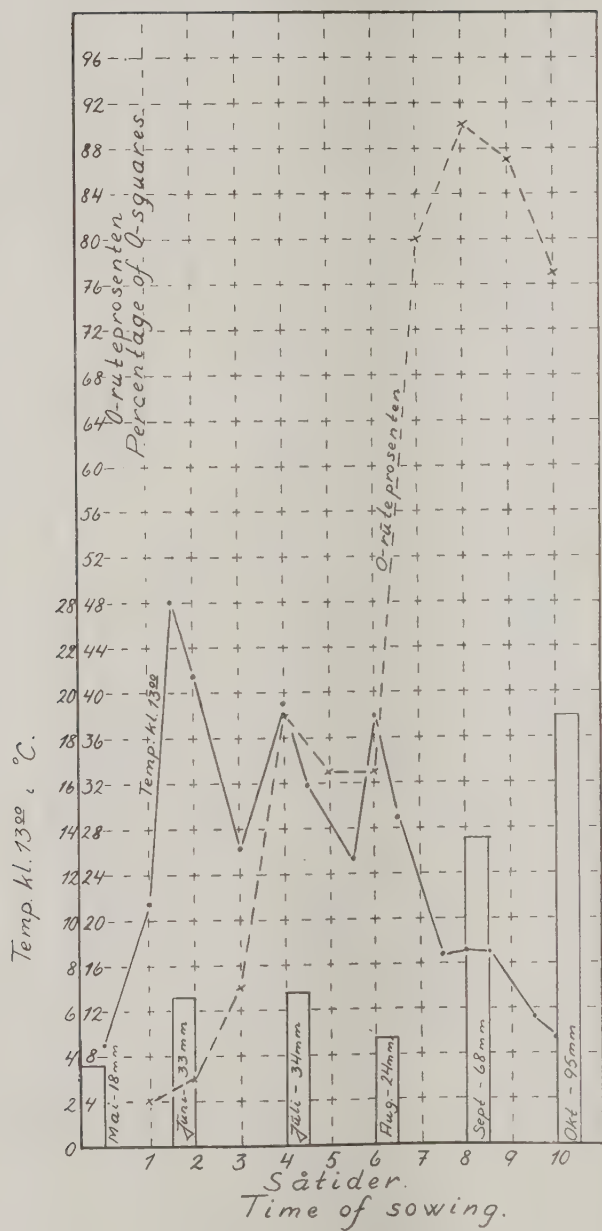 96
92
88
84
80
76
72
68
64
60
56
52
28 48
22 44
20 40
18 36
16 32
14 28
12 24
10 20
8 16
6 12
4 8
2 4
0
0-ruteprosenten
Percentage of 0-squares
Temp. kl. 13⁰⁰ i °C.
Temp. kl. 13⁰⁰
0-ruteprosenten
Mai-18mm
Juni-33mm
Juli-34mm
Aug-24mm
Sept-68mm
Okt-95mm
1 2 3 4 5 6 7 8 9 10
Såtider.
Time of sowing.